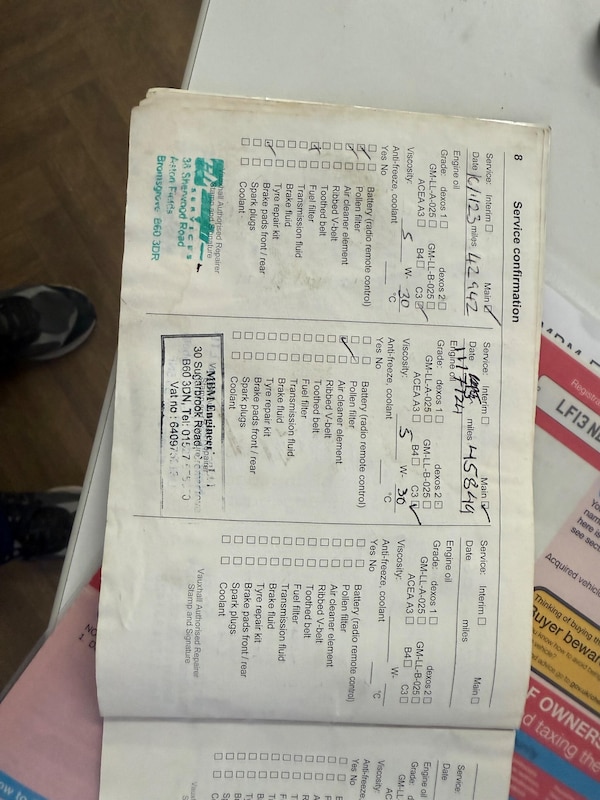 8
Service confirmation
Service: Interim Main
Date miles 42942
Engine oil
Grade: dexos 1 dexos 2
GM-LL-A-025 GM-LL-B-025
ACEA A3 B4 C3
Viscosity: 5 W- 30
Anti-freeze, coolant °C
Yes No
Battery (radio remote control)
Pollen filter
Air cleaner element
Ribbed V-belt
Toothed belt
Fuel filter
Transmission fluid
Brake fluid
Tyre repair kit
Brake pads front / rear
Spark plugs
Coolant
Vauxhall Authorised Repairer
Stamp and Signature
services
3A Sherwood Road
Aston Fields
Bromsgrove B60 3DR
Service: Interim Main
Date miles 45844
Engine oil
Grade: dexos 1 dexos 2
GM-LL-A-025 GM-LL-B-025
ACEA A3 B4 C3
Viscosity: 5 W- 30
Anti-freeze, coolant °C
Yes No
Battery (radio remote control)
Pollen filter
Air cleaner element
Ribbed V-belt
Toothed belt
Fuel filter
Transmission fluid
Brake fluid
Tyre repair kit
Brake pads front / rear
Spark plugs
Coolant
MBM
30 Sugarbrook Road
B60 3DN, Tel:
Vat no :
Service: Interim Main
Date miles
Engine oil
Grade: dexos 1 dexos 2
GM-LL-A-025 GM-LL-B-025
ACEA A3 B4 C3
Viscosity: W-
Anti-freeze, coolant °C
Yes No
Battery (radio remote control)
Pollen filter
Air cleaner element
Ribbed V-belt
Toothed belt
Fuel filter
Transmission fluid
Brake fluid
Tyre repair kit
Brake pads front / rear
Spark plugs
Coolant
Vauxhall Authorised Repairer
Stamp and Signature
Service:
Date
Engine oil
Grade:
Viscosity:
Yes No
LF13
Acquired vehicle
Thinking of buying